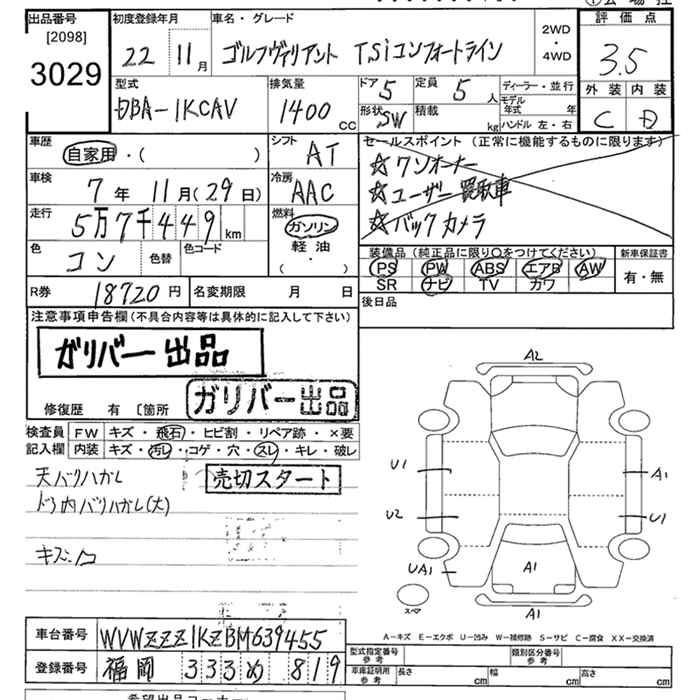 出品番号
[2098]
3029
初度登録年月
22 11月
車名・グレード
ゴルフヴァリアント TSiコンフォートライン
2WD
・
4WD
評価点
3.5
外装 内装
C D
型式
DBA-1KCAV
排気量
1400 CC
ドア 5
定員 5 人
形状 SW
積載 kg
ディーラー・並行
モデル年式 年
ハンドル 左・右
車歴
自家用・( )
シフト
AT
セールスポイント (正常に機能するものに限ります)
☆ワンオーナー
☆ユーザー買取車
☆バックカメラ
車検
7年 11月(29日)
冷房
AAC
走行
5万7千449km
燃料
ガソリン
軽油
( ・ )
色
コン
色替
色コード
装備品(純正品に限り○をつけてください)
PS PW ABS エアB AW
SR ナビ TV カワ
新車保証書
有・無
R券 18720円
名変期限 月 日
後日品
注意事項申告欄(不具合内容等は具体的に記入して下さい)
ガリバー出品
ガリバー出品
修復歴 有 〔箇所
検査員記入欄
FW キズ・飛石・ヒビ割・リペア跡・×要
内装 キズ・汚レ・コゲ・穴・スレ・キレ・破レ
天バリハガレ
売切スタート
ドア内バリハガレ(大)
キズ凹
A2
U1
A1
U2
U1
UA1
A1
スペア
A1
A-キズ E-エクボ U-凹み W-補修跡 S-サビ C-腐食 XX-交換済
車台番号 WVWZZZ1KZBM639455
登録番号 福岡 333め 819
型式指定番号 参考
類別区分番号 参考
車庫証明用 参考
長さ cm
幅 cm
高さ cm
希望出品コーナー